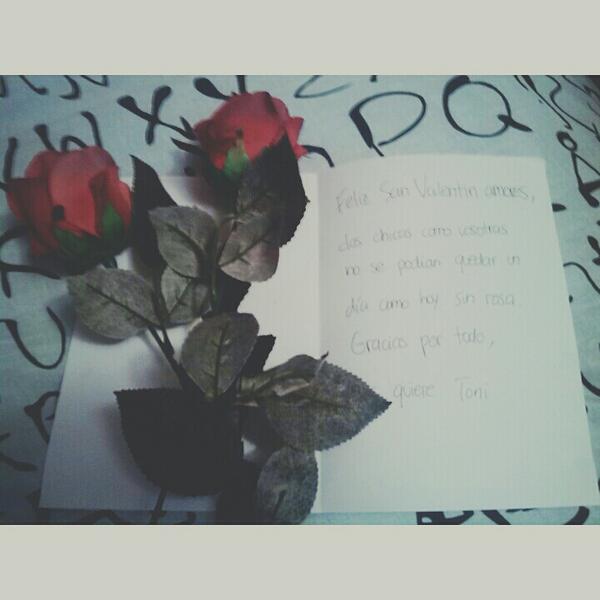 D Q
Feliz San Valentin amores,
dos chicas como vosotras
no se podían quedar un
día como hoy sin rosa.
Gracias por todo,
quiere Toni